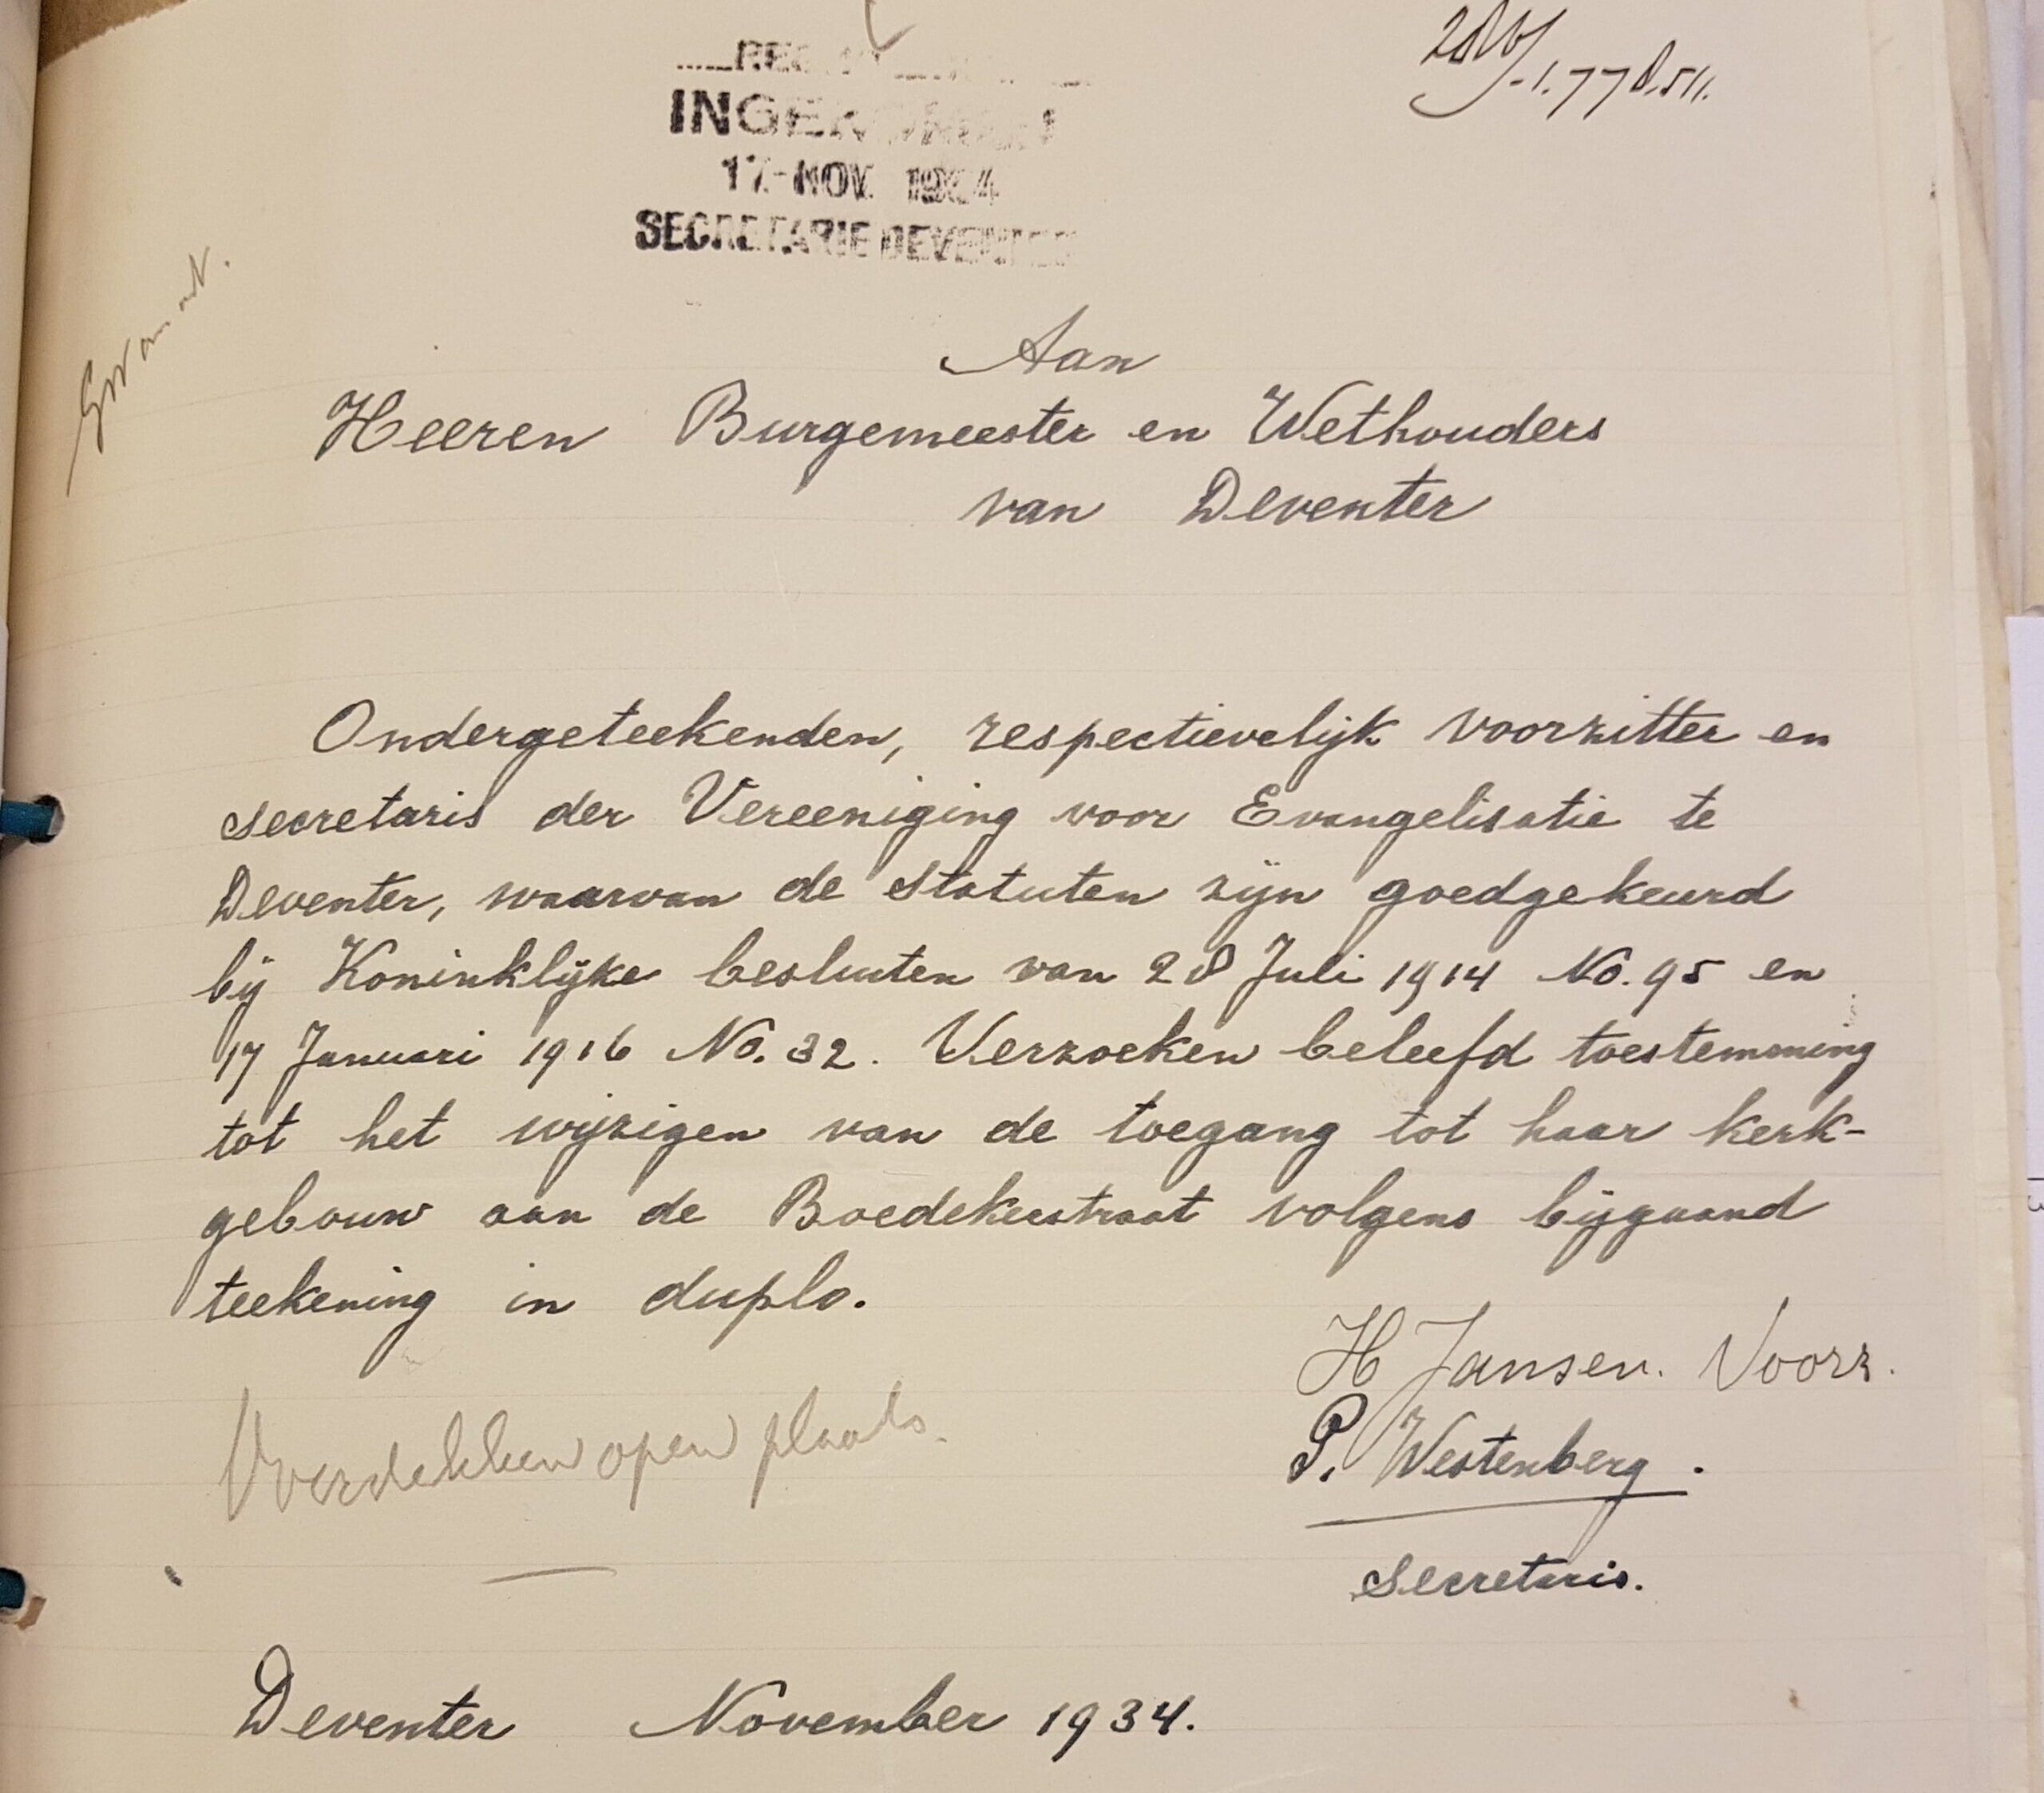 INGEKOMEN
17 NOV. 1934
SECRETARIE DEVENTER
-1.778.511.
Aan
Heeren Burgemeester en Wethouders
van Deventer
Ondergeteekenden, respectievelijk voorzitter en
secretaris der Vereeniging voor Evangelisatie te
Deventer, waarvan de statuten zijn goedgekeurd
bij Koninklijke besluiten van 28 Juli 1914 No. 95 en
17 Januari 1916 No. 32. Verzoeken beleefd toestemming
tot het wijzigen van de toegang tot haar kerk-
gebouw aan de Boedekerstraat volgens bijgaand
teekening in duplo.
H Jansen. Voorz.
P. Westenberg.
secretaris.
open plaats.
Deventer November 1934.